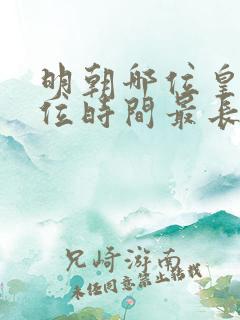 明朝哪位皇
位時間最長
兄崎游南
未经同意禁止转载